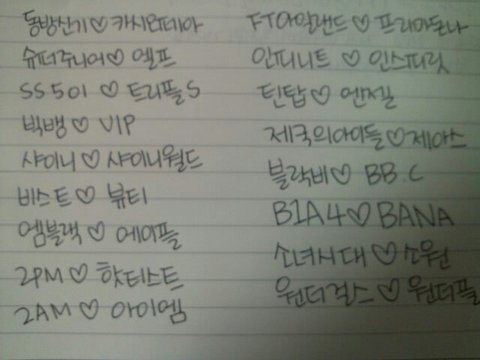 동방신기♡카시오페아
슈퍼주니어♡엘프
SS501♡트리플S
빅뱅♡VIP
샤이니♡샤이니월드
비스트♡뷰티
엠블랙♡에이플
2PM♡핫티스트
2AM♡아이엠
FT아일랜드♡프리마돈나
인피니트♡인스피릿
틴탑♡엔젤
제국의아이들♡제아스
블락비♡BB.C
B1A4♡BANA
소녀시대♡소원
원더걸스♡원더풀